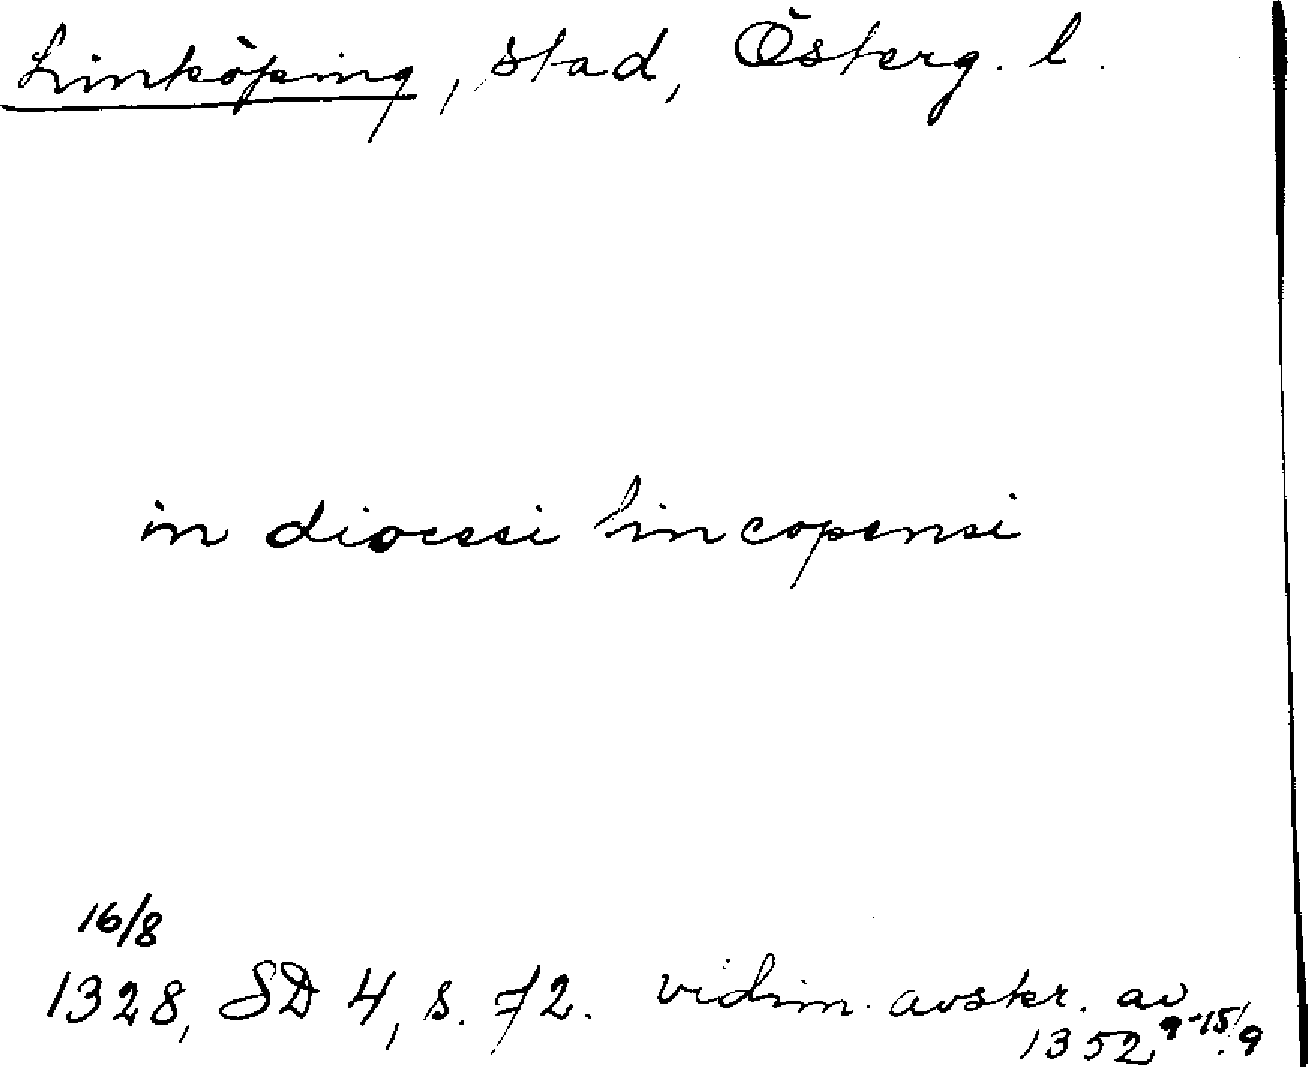 Linköping, stad, Österg. l.
in diocesi lincopensi
16/8
1328, SD 4, s. 72. vidim. avskr. av
1352 9-15/9